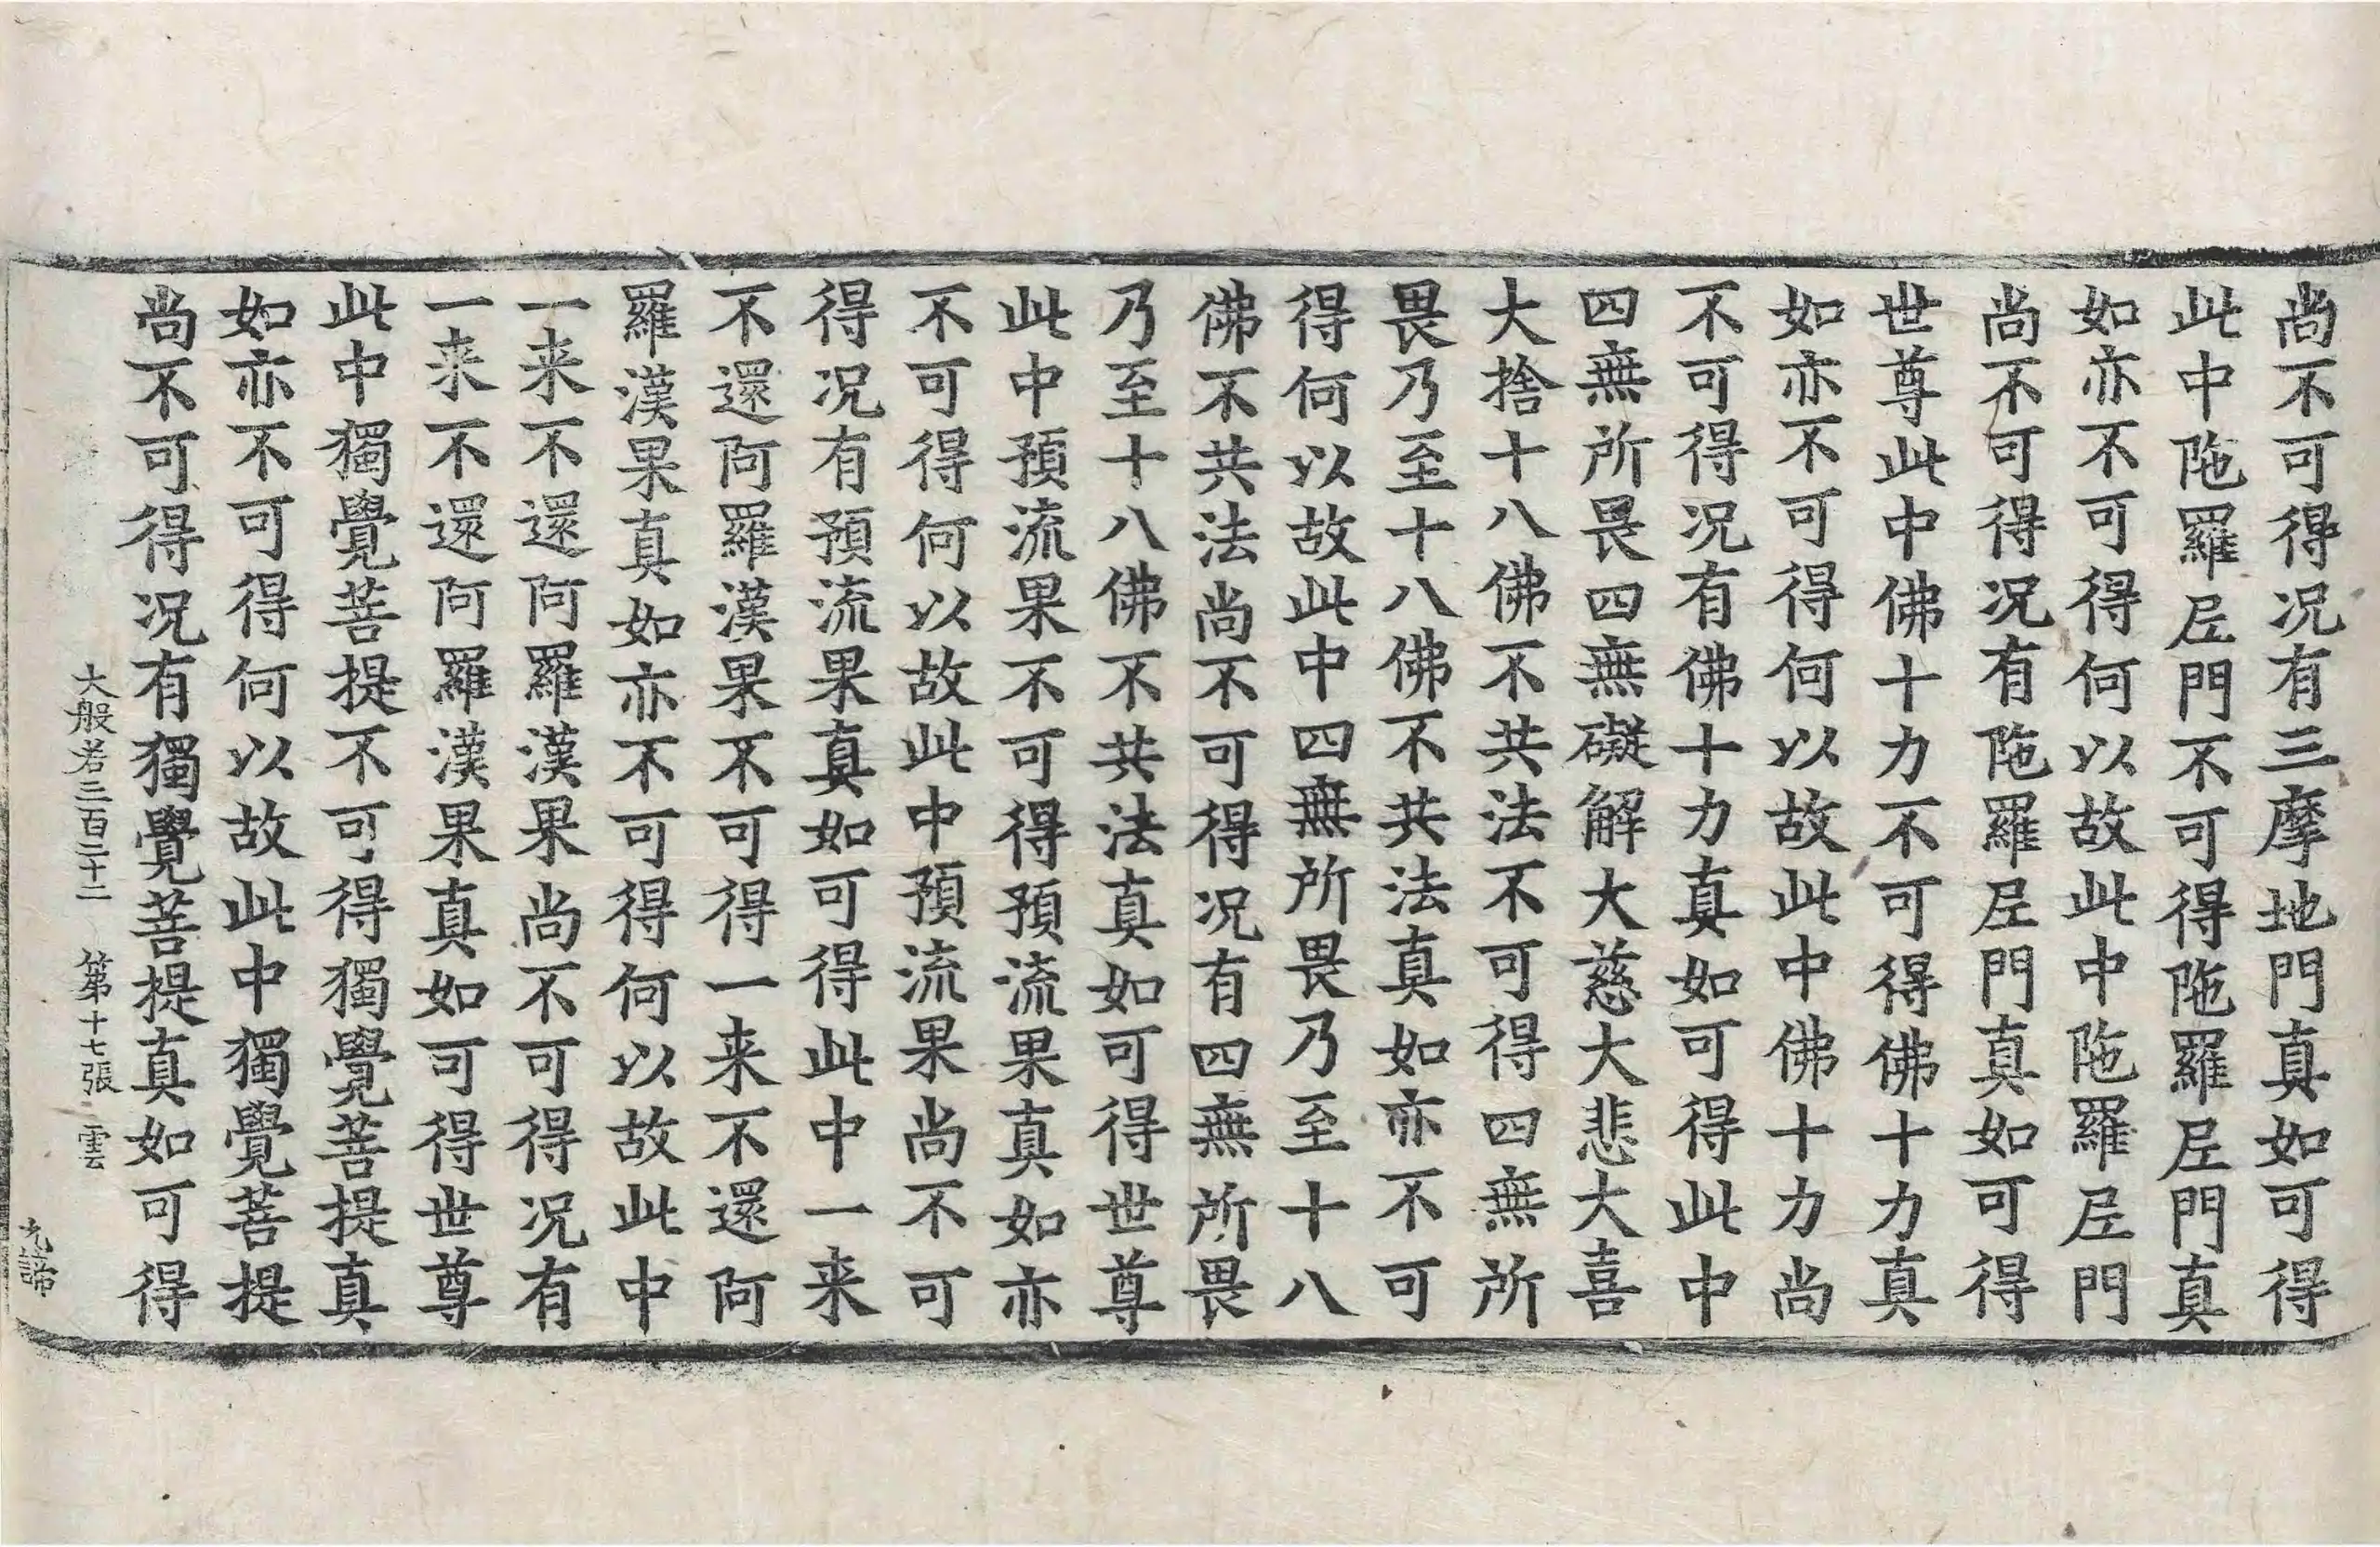 尚不可得况有三摩地門真如可得
此中陁羅𡰱門不可得陁羅𡰱門真
如亦不可得何以故此中陁羅𡰱門
尚不可得况有陁羅𡰱門真如可得
世尊此中佛十力不可得佛十力真
如亦不可得何以故此中佛十力尚
不可得况有佛十力真如可得此中
四無所畏四無礙解大慈大悲大喜
大捨十八佛不共法不可得四無所
畏乃至十八佛不共法真如亦不可
得何以故此中四無所畏乃至十八
佛不共法尚不可得况有四無所畏
乃至十八佛不共法真如可得世尊
此中預流果不可得預流果真如亦
不可得何以故此中預流果尚不可
得况有預流果真如可得此中一来
不還阿羅漢果不可得一来不還阿
羅漢果真如亦不可得何以故此中
一来不還阿羅漢果尚不可得况有
一来不還阿羅漢果真如可得世尊
此中獨覺菩提不可得獨覺菩提真
如亦不可得何以故此中獨覺菩提
尚不可得况有獨覺菩提真如可得
大般若三百二十二 第十七張 雲